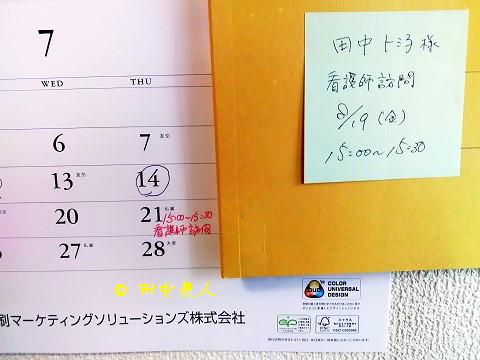 7
WED THU
6 友引 7
13 友引 14
20 21 仏滅
15:00~15:30
看護師訪問
27 仏滅 28 大安
© 田中真人
刷マーケティングソリューションズ株式会社
CUD
COLOR
UNIVERSAL
DESIGN
FSC
田中トミ子様
看護師訪問
8/19(金)
15:00~15:30